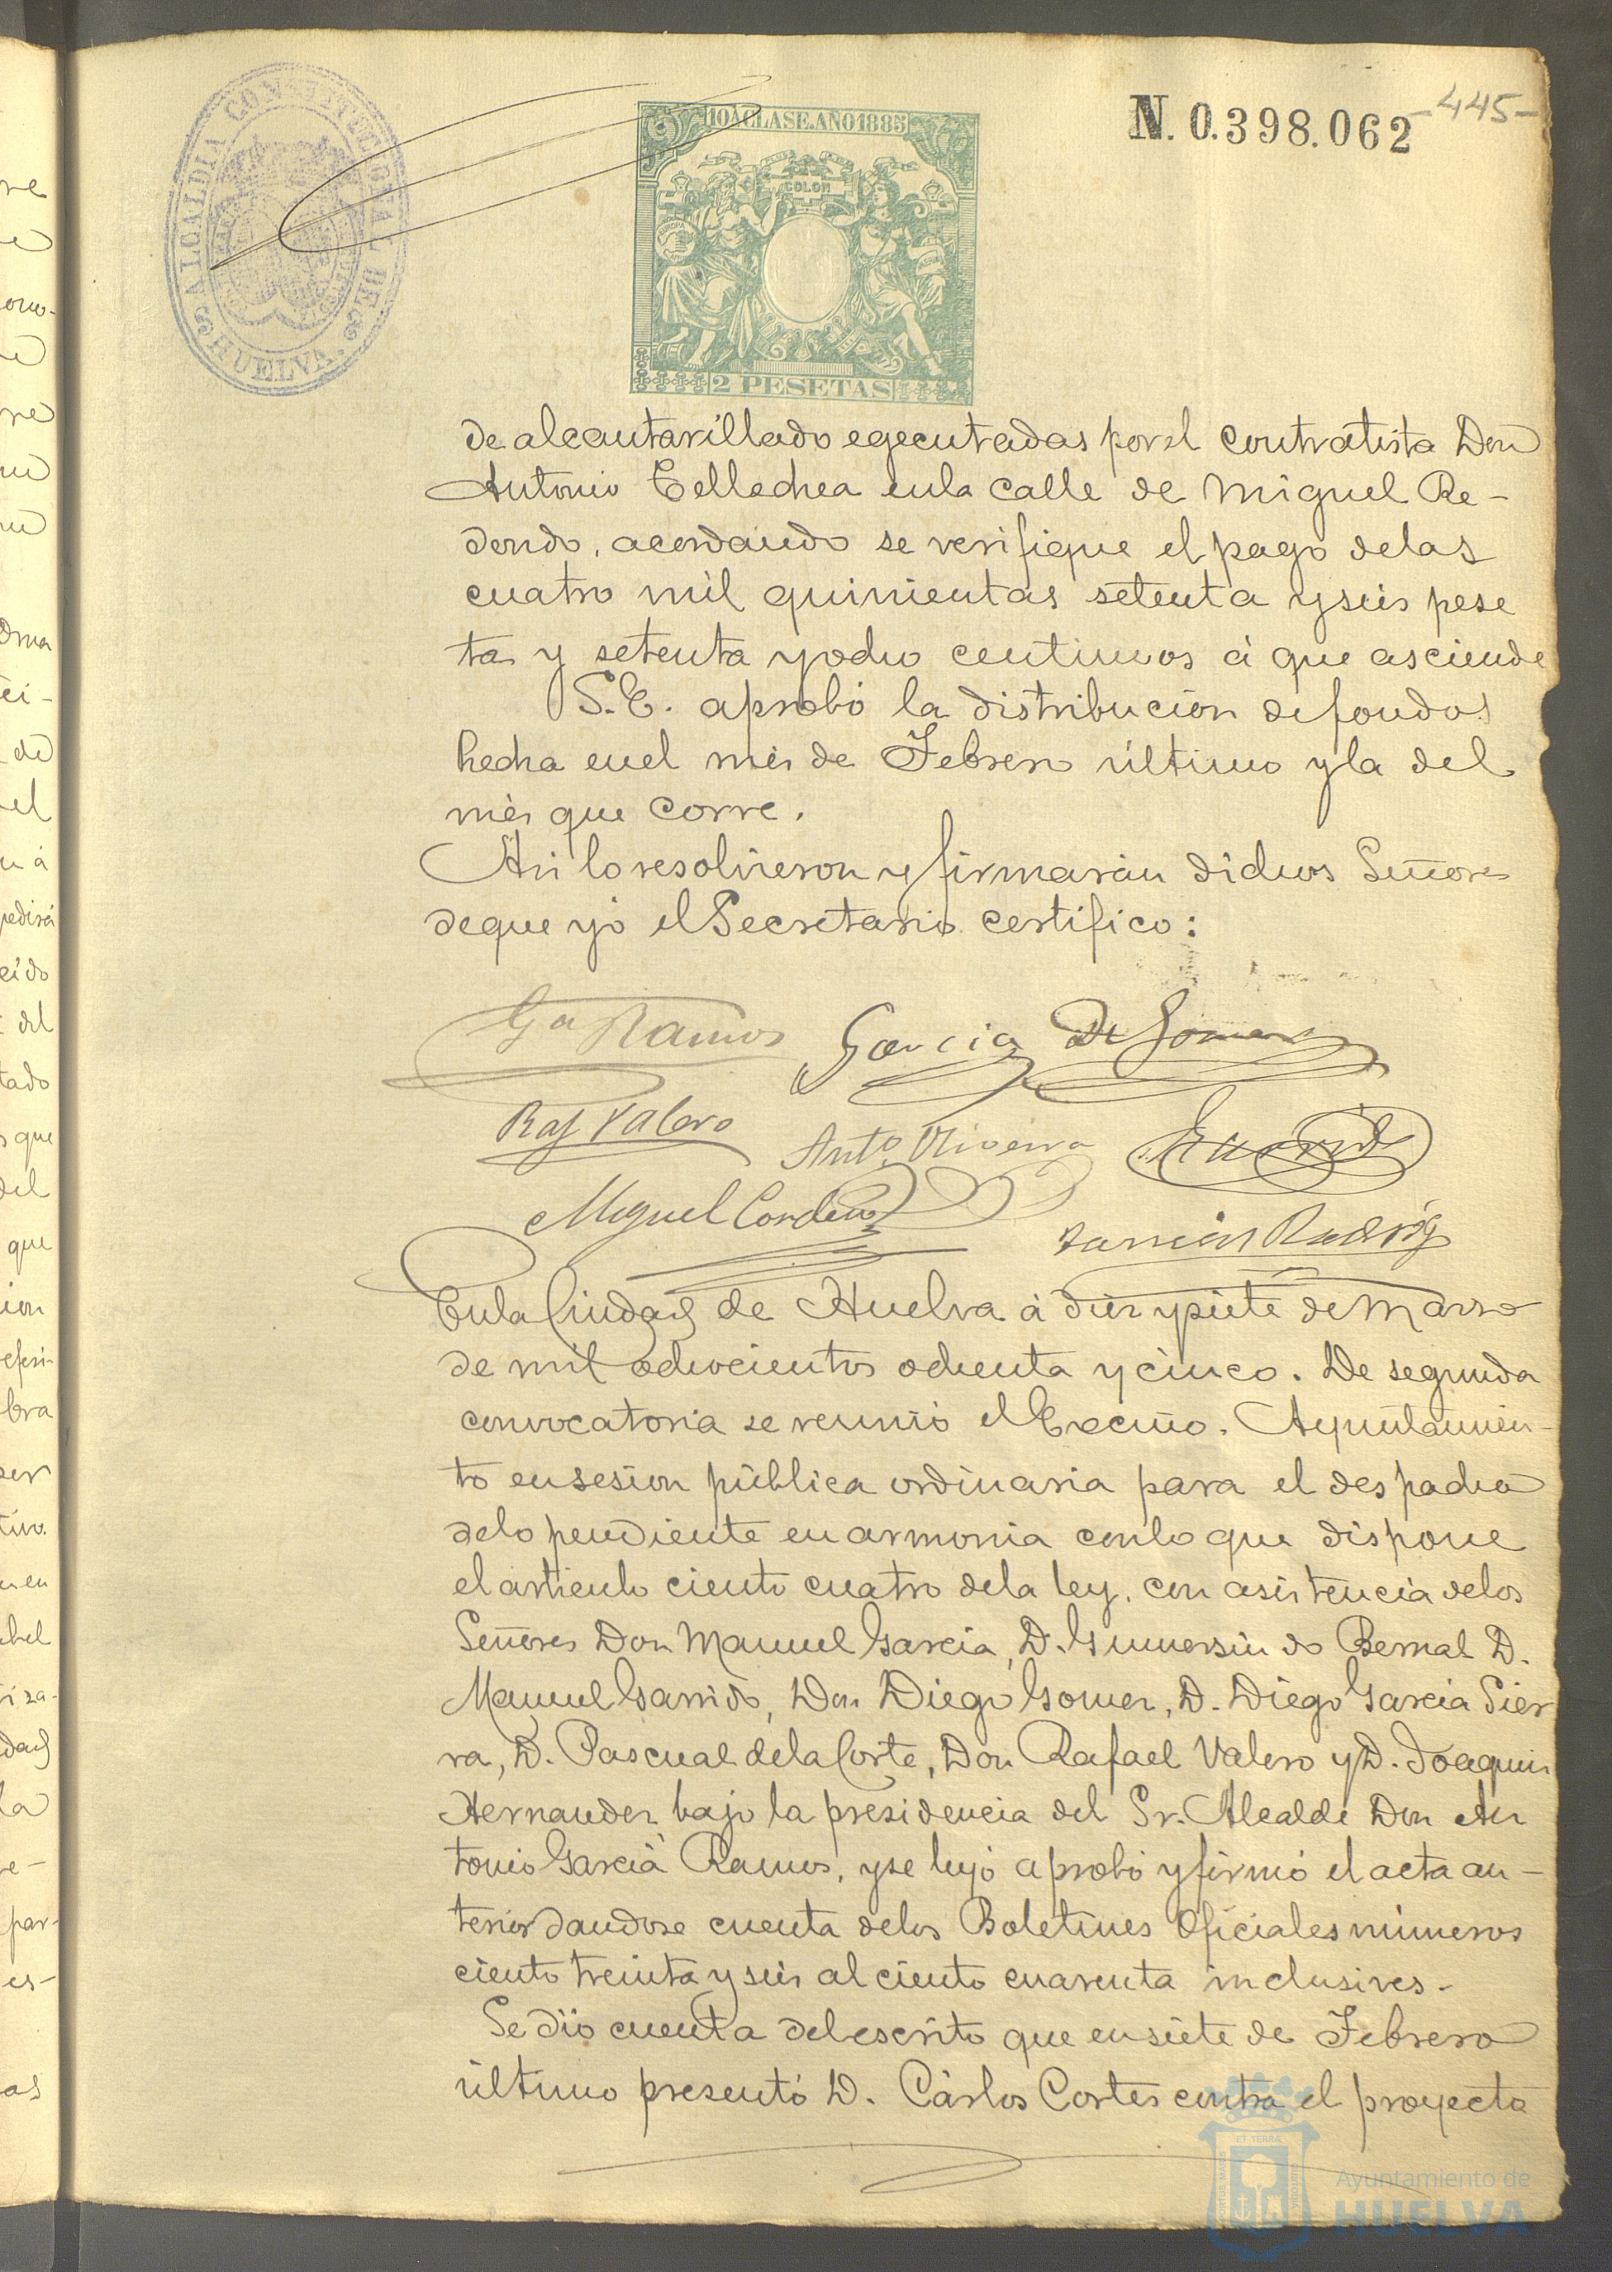 N. 0.398.062 -445-
ALCALDIA CONSTITUCIONAL DE HUELVA
10A CLASE. AÑO 1885
COLON
EUROPA
2 PESETAS
de alcantarillado egecutadas por el contratista Don
Antonio Tellechea en la calle de Miguel Re-
dondo, acordando se verifique el pago de las
cuatro mil quinientas setenta y seis pese
tas y setenta y ocho centimos á que asciende
S. E. aprobó la distribución de fondos
hecha en el més de Febrero último y la del
més que corre.
Asi lo resolvieron y firmarán dichos Señores
de que yó el Secretario certifico:
Ga Ramos García de Gomez
Raf Valero Anto. Oliveira
Miguel Cordero
En la Ciudad de Huelva á diez y siete de Marzo
de mil ochocientos ochenta y cinco. De segunda
convocatoria se reunió el Excmo. Ayuntamien-
to en sesion pública ordinaria para el despacho
de lo pendiente en armonia con lo que dispone
el artículo ciento cuatro de la ley, con asistencia de los
Señores Don Manuel Garcia, D. Gumersindo Bernal D.
Manuel Garrido, Don Diego Gomez, D. Diego Garcia Sier
ra, D. Pascual de la Corte, Don Rafael Valero y D. Joaquin
Hernandez bajo la presidencia del Sr. Alcalde Don An
tonio García Ramos, y se leyó aprobó y firmó el acta an-
terior dandose cuenta de los Boletines Oficiales números
ciento treinta y seis al ciento cuarenta inclusives.
Se dió cuenta del escrito que en siete de Febrero
último presentó D. Cárlos Cortes contra el proyecto
Ayuntamiento de
HUELVA